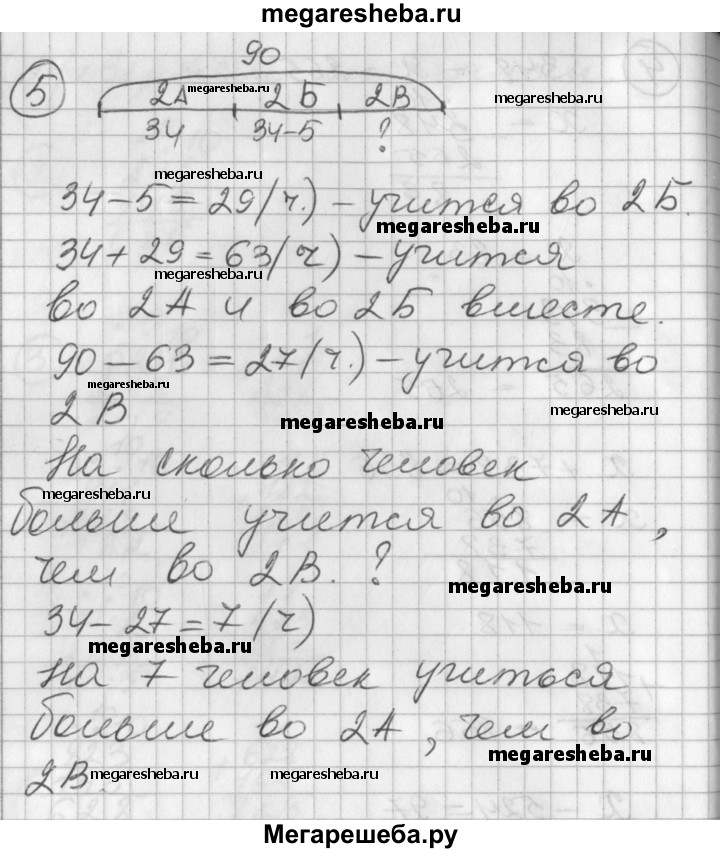 megaresheba.ru
90
5 2А megaresheba.ru 2Б 2В megaresheba.ru
34 34-5 ?
megaresheba.ru
34-5=29(ч.) - учится во 2Б.
megaresheba.ru megaresheba.ru
34+29=63(ч) - учится
megaresheba.ru
во 2А и во 2Б вместе.
90-63=27(ч.) - учится во
megaresheba.ru
2В megaresheba.ru megaresheba.ru
На сколько человек
megaresheba.ru
больше учится во 2А,
чем во 2В.? megaresheba.ru
34-27=7(ч)
megaresheba.ru
На 7 человек учиться
больше во 2А, чем во
megaresheba.ru
2В. megaresheba.ru megaresheba.ru
Мегарешеба.ру